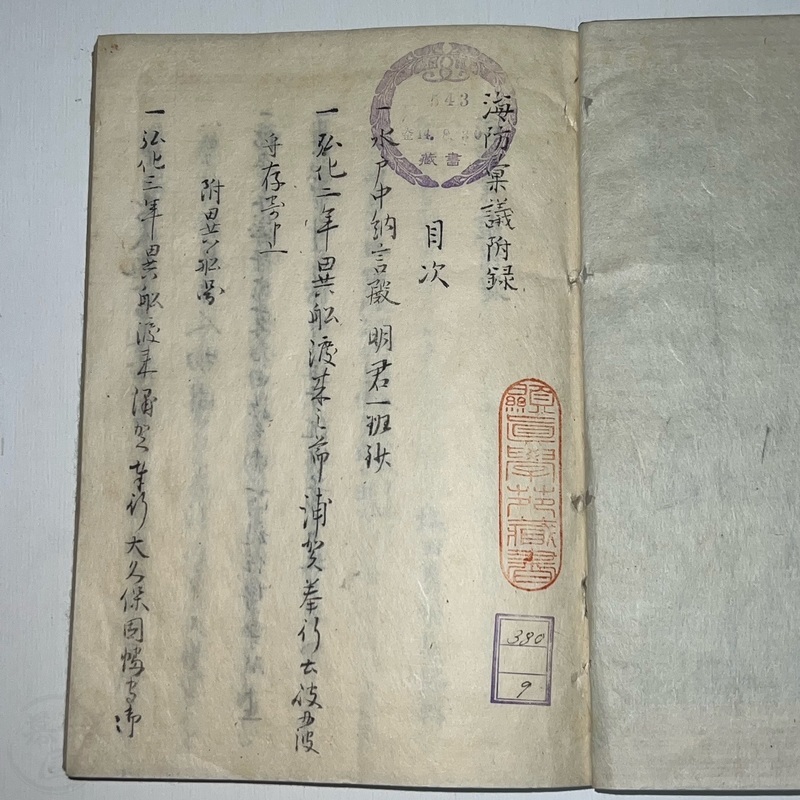 海防彙議附録
目次
一水戸中納言殿明君一班抄
一弘化二年異舩渡来之節浦賀奉行土岐丹波
守存寄申上
附異舩図
一弘化三年異舩渡来浦賀奉行大久保因幡守御
643
8.30
蔵書
蔵書
380
9